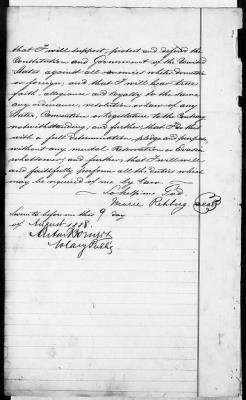 that I will support, protect and defend the
Constitution and Government of the United
States against all enemies, whether domestic
or foreign; and that I will bear true
faith, allegiance and loyalty to the same,
any ordinance, resolution or law of any
State, Convention or Legislature to the Contrary
notwithstanding; and further, that I do this
with a full determination, pledge and purpose
without any mental Reservation or Evasion
whatsoever; and further, that I will well
and faithfully perform all the duties which
may be required of me by law.
So help me God
Marie Rehberg Seal
Sworn to before me this 9 day
of August
Notary Public